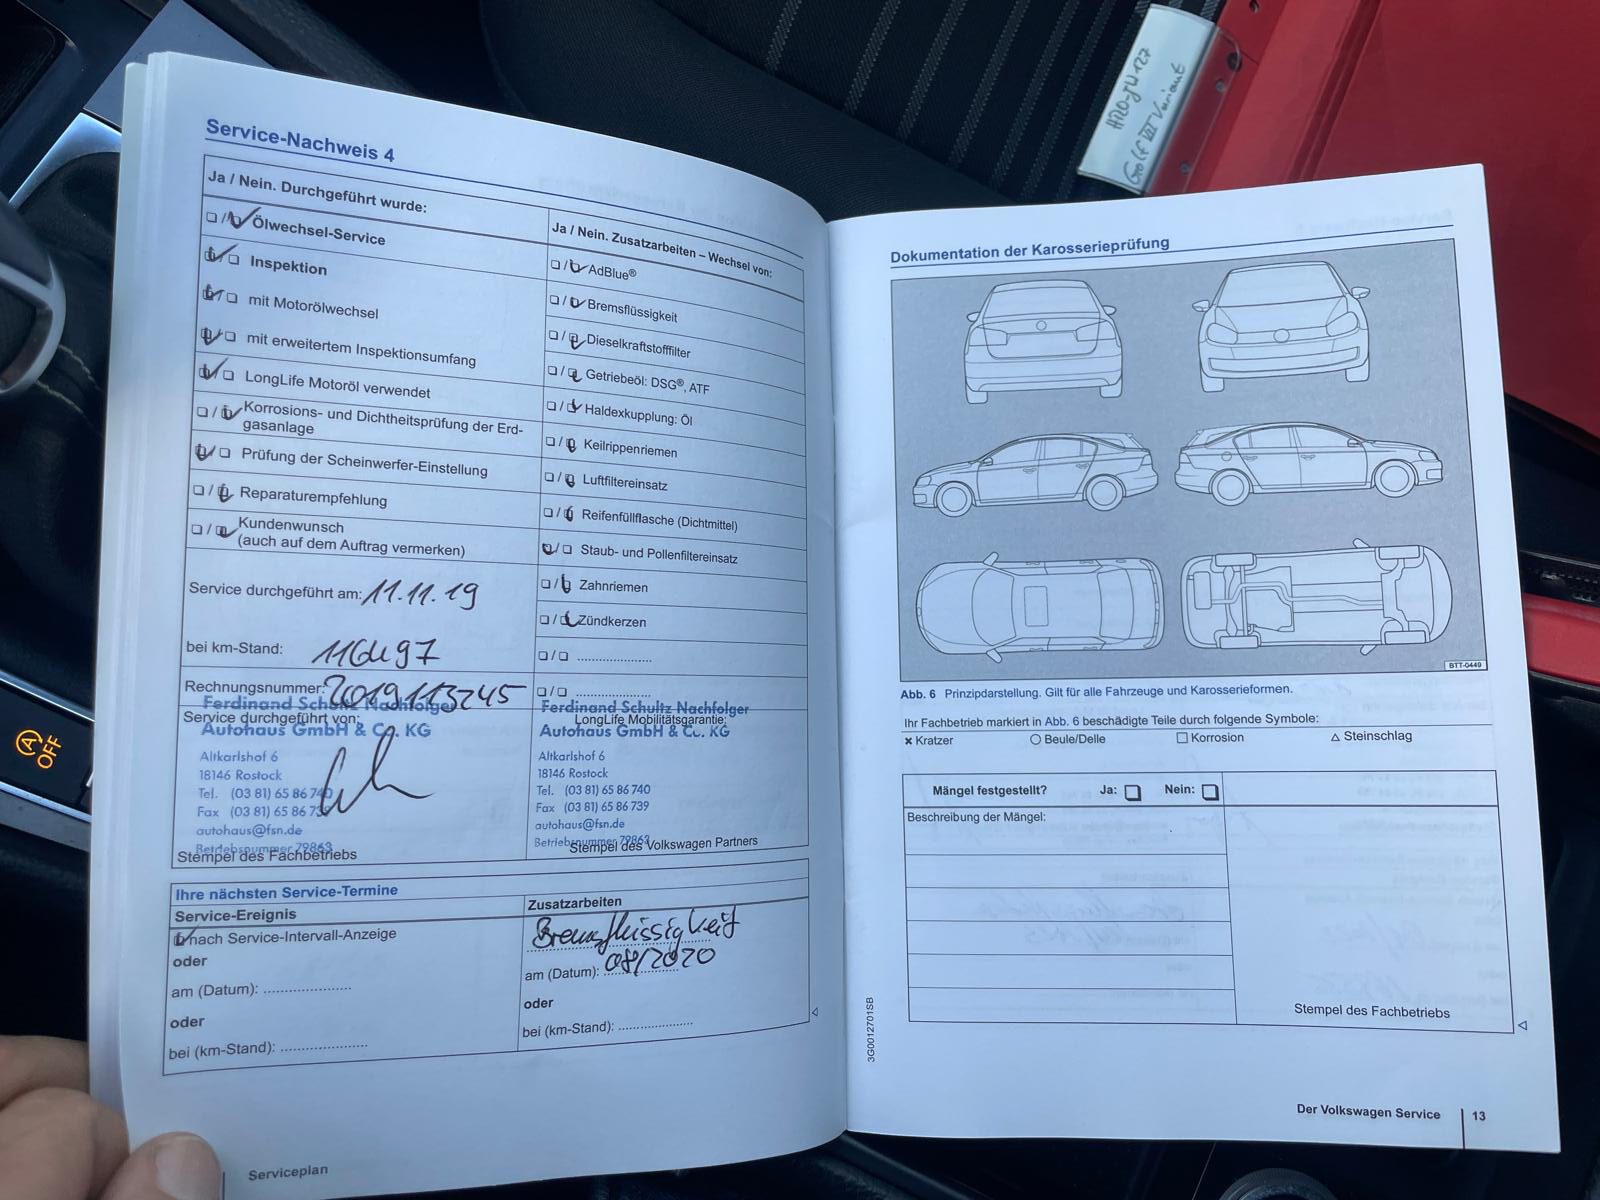 Service-Nachweis 4
Ja / Nein. Durchgeführt wurde:
Ölwechsel-Service
Inspektion
mit Motorölwechsel
mit erweitertem Inspektionsumfang
LongLife Motoröl verwendet
Korrosions- und Dichtheitsprüfung der Erd-
gasanlage
Prüfung der Scheinwerfer-Einstellung
Reparaturempfehlung
Kundenwunsch
(auch auf dem Auftrag vermerken)
Service durchgeführt am: 11.11.19
bei km-Stand:
Rechnungsnummer: 2019113245
Ferdinand Schultz Nachfolger
Service durchgeführt von:
Autohaus GmbH & Co. KG
Altkarlshof 6
18146 Rostock
Tel. (03 81) 65 86 740
Fax (03 81) 65 86 739
autohaus@fsn.de
Betriebsnummer 79863
Stempel des Fachbetriebs
Ja / Nein. Zusatzarbeiten – Wechsel von:
AdBlue®
Bremsflüssigkeit
Dieselkraftstofffilter
Getriebeöl: DSG®, ATF
Haldexkupplung: Öl
Keilrippenriemen
Luftfiltereinsatz
Reifenfüllflasche (Dichtmittel)
Staub- und Pollenfiltereinsatz
Zahnriemen
Zündkerzen
Ferdinand Schultz Nachfolger
LongLife Mobilitätsgarantie:
Autohaus GmbH & Co. KG
Altkarlshof 6
18146 Rostock
Tel. (03 81) 65 86 740
Fax (03 81) 65 86 739
autohaus@fsn.de
Betriebsnummer 79863
Stempel des Volkswagen Partners
Ihre nächsten Service-Termine
Service-Ereignis
nach Service-Intervall-Anzeige
oder
am (Datum): ....................
oder
bei (km-Stand): ....................
Zusatzarbeiten
Bremsflüssigkeit
am (Datum): 08/2020
oder
bei (km-Stand): .................
Serviceplan
HRO-JW 127
Golf VII Variant
Dokumentation der Karosserieprüfung
BTT-0449
Abb. 6 Prinzipdarstellung. Gilt für alle Fahrzeuge und Karosserieformen.
Ihr Fachbetrieb markiert in Abb. 6 beschädigte Teile durch folgende Symbole:
Kratzer Beule/Delle Korrosion Steinschlag
Mängel festgestellt? Ja: Nein:
Beschreibung der Mängel:
Stempel des Fachbetriebs
3G0012701SB
Der Volkswagen Service 13
A OFF